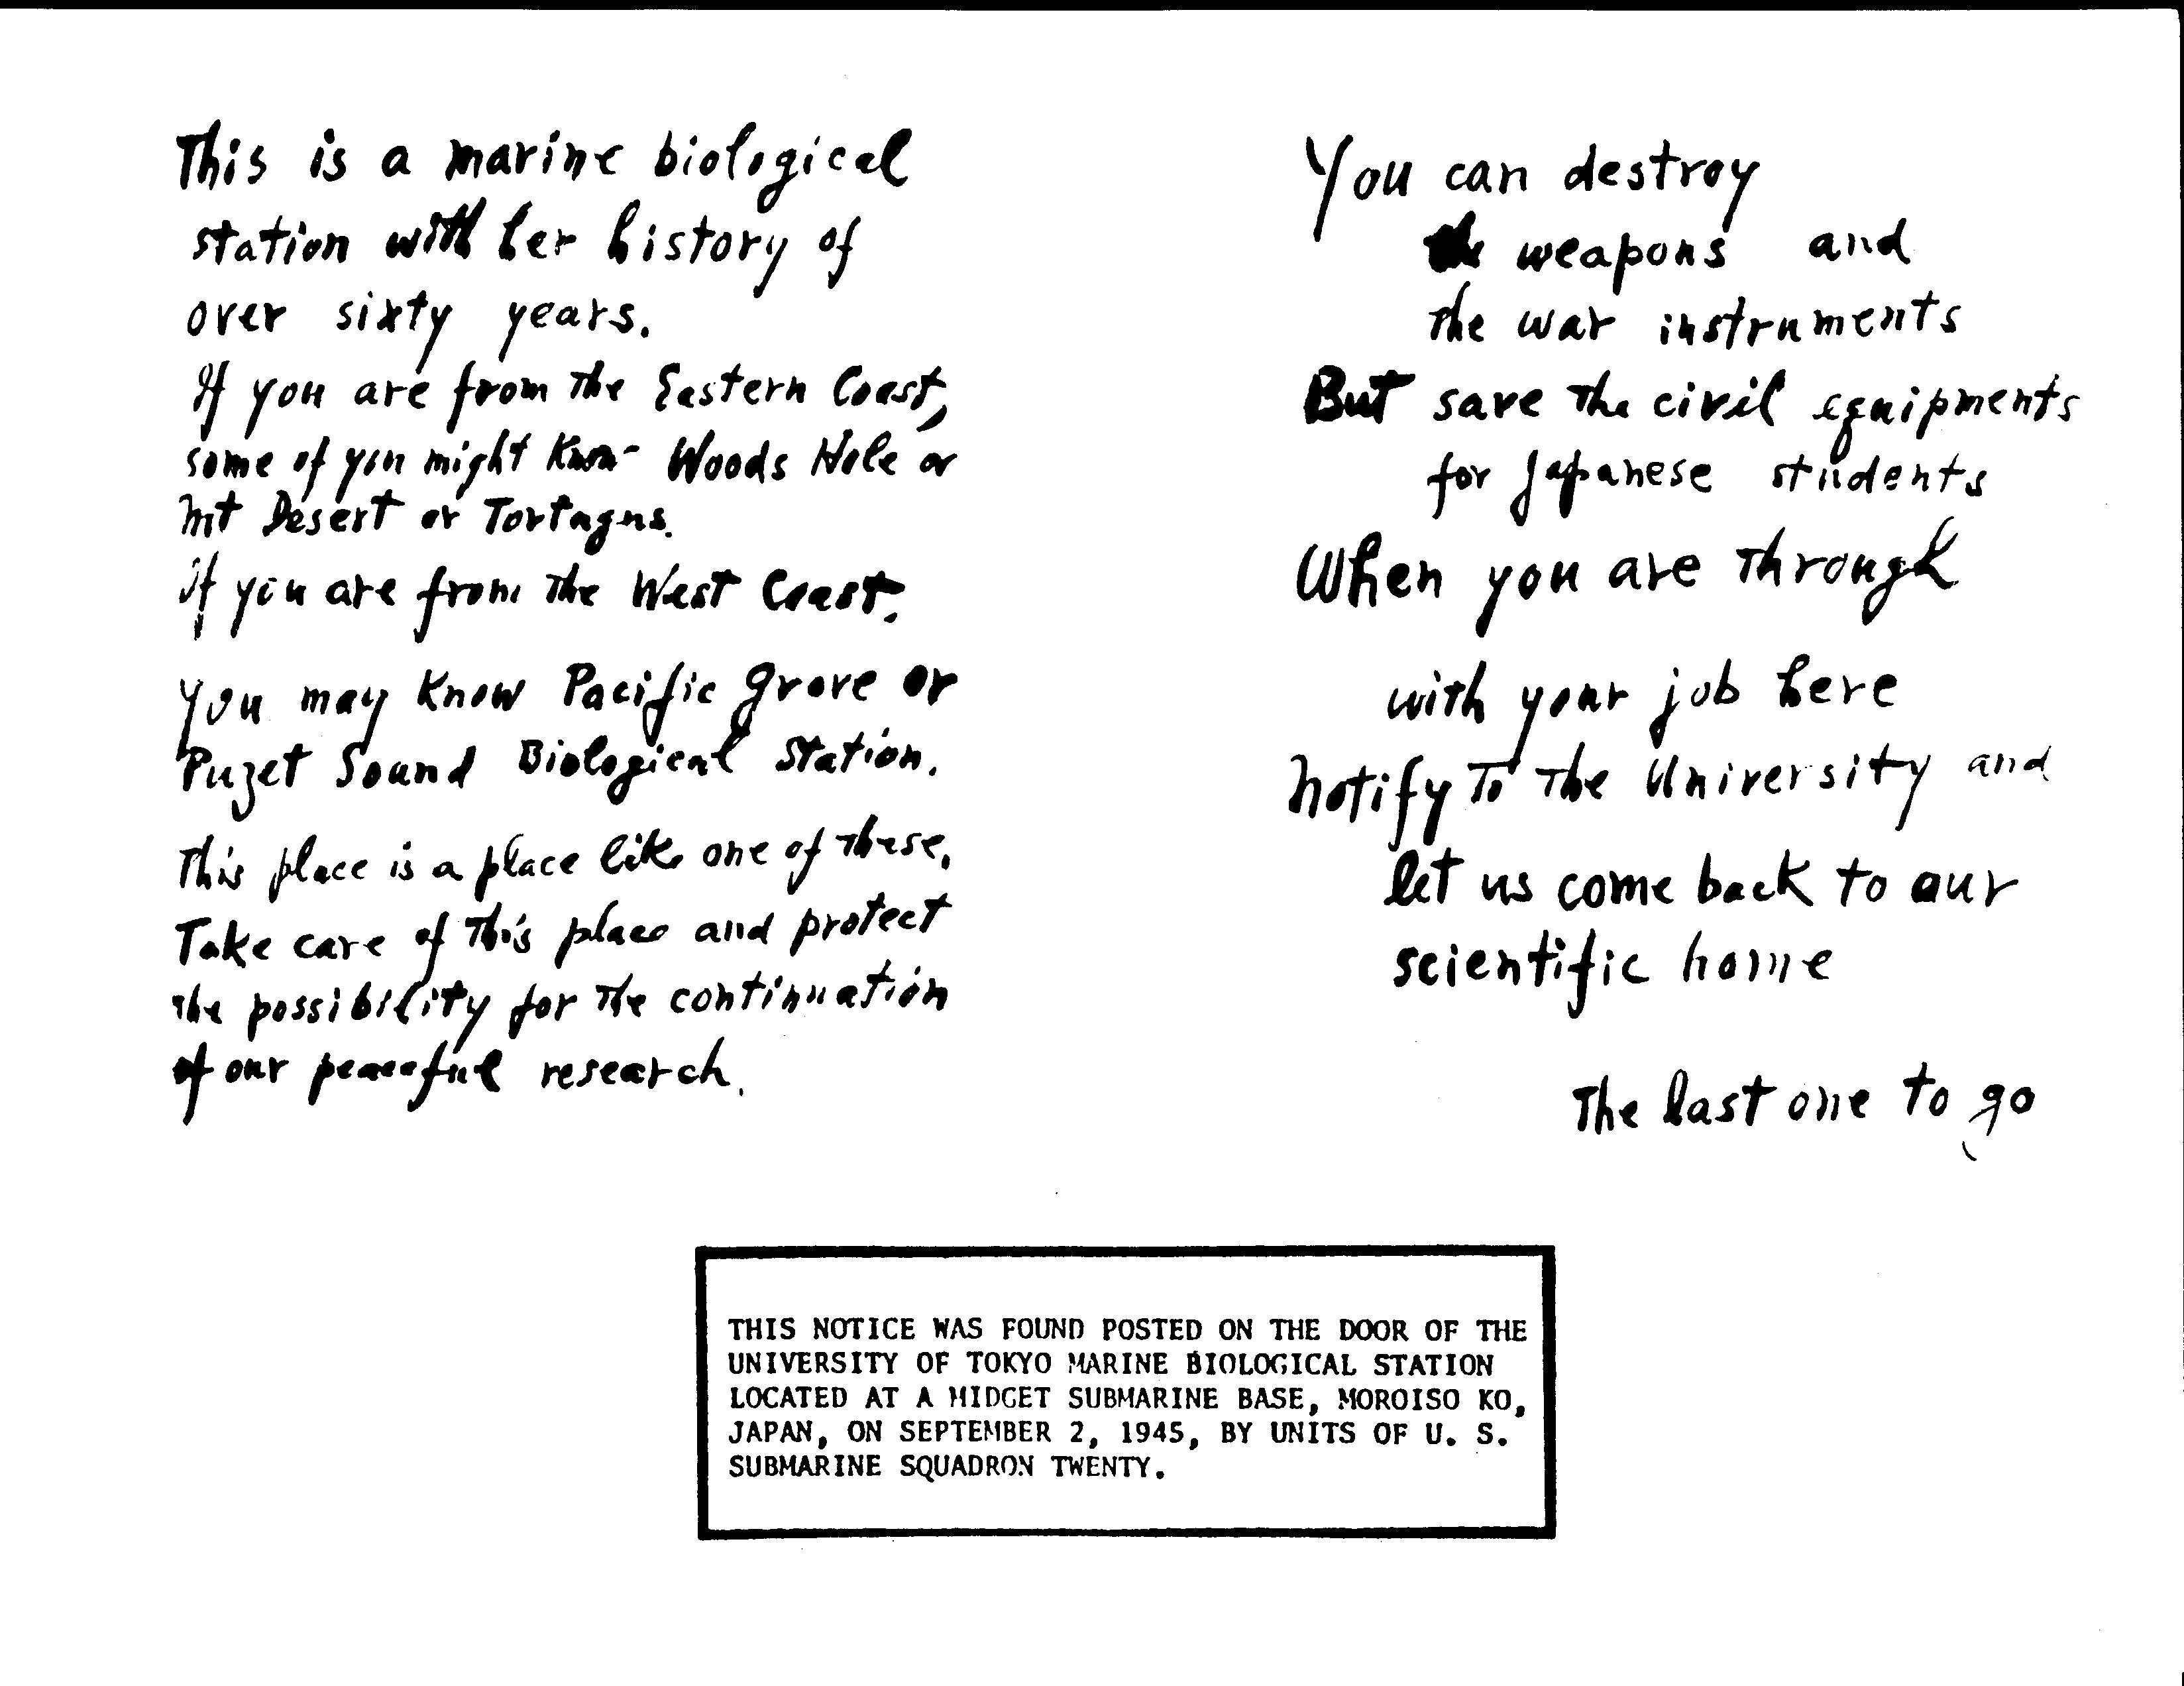 This is a marine biological
station with her history of
over sixty years.
If you are from the Eastern Coast,
some of you might know Woods Hole or
Mt Desert or Tortugas.
If you are from the West Coast,
you may know Pacific Grove or
Puget Sound Biological Station.
This place is a place like one of these.
Take care of this place and protect
the possibility for the continuation
of our peaceful research.
You can destroy
the weapons and
the war instruments
But save the civil equipments
for Japanese students
When you are through
with your job here
notify to the University and
let us come back to our
scientific home
The last one to go
THIS NOTICE WAS FOUND POSTED ON THE DOOR OF THE
UNIVERSITY OF TOKYO MARINE BIOLOGICAL STATION
LOCATED AT A MIDGET SUBMARINE BASE, MOROISO KO,
JAPAN, ON SEPTEMBER 2, 1945, BY UNITS OF U. S.
SUBMARINE SQUADRON TWENTY.